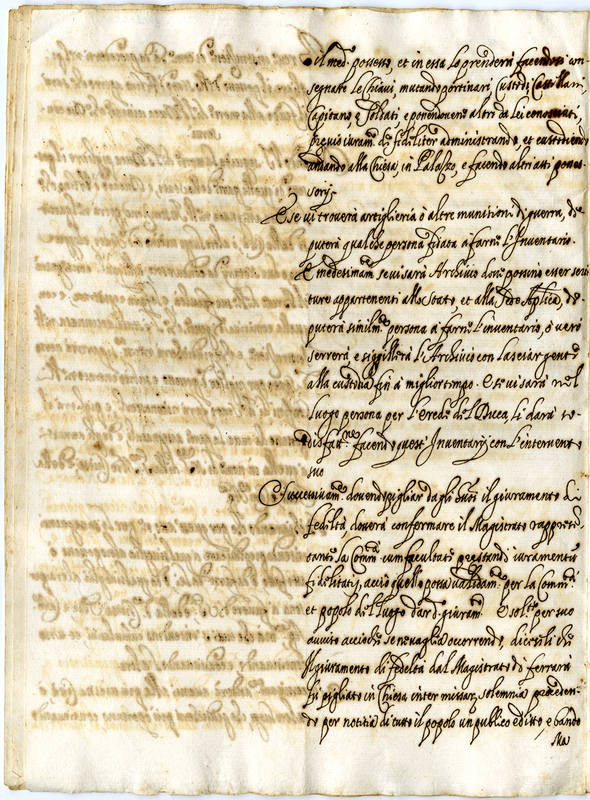 il med.º possesso, et in essa lo prenderà facendosi con
segnare le Chiavi, mutando portinari, Custodi, Castellani,
Capitano, e Soldati e ponendovene altri da lei
previo iuram.º de fideliter administrando, et custodiendo
andando alla Chiesa, in Palazzo, e facendo altri atti posses-
sorij.
E se vi troverà artiglieria ò altre munitioni di guerra, de
puterà qualche persona fidata à farne l'Inventario.
E medesimam.te se vi sarà Archivio dove possino esser scrit
ture appartenenti allo Stato, et alla Sede Ap.lica, de
puterà similm.te persona à farne l'inventario, ò vero
serrerà e sigillerà l'Archivio con lasciar gente
alla custodia fin à miglior tempo. E se vi sarà nel
luogo persona per l'erede del Duca, li darà so-
disfatt.ne facendo questi Inventarij con l'intervento
suo
E successivam.te dovendo pigliar dagli il giuramento di
fedeltà, doverà confermare il Magistrato rappresē
tante la Comm.tà cum facultate prestandi iuramentū
fidelitatis, acciò quello possa validam.te per la Comm.tà
et popolo del luogo dar d.º giuram.to E sol.º per suo
avviso acciò che se ne vaglia occorrendo, dicesili che
Il giuramento di fedeltà dal Magistrato di ferrara
fù pigliato in Chiesa inter missar. solemnia preceden-
do per notitia di tutto il popolo un publico editto, e bando
Ma